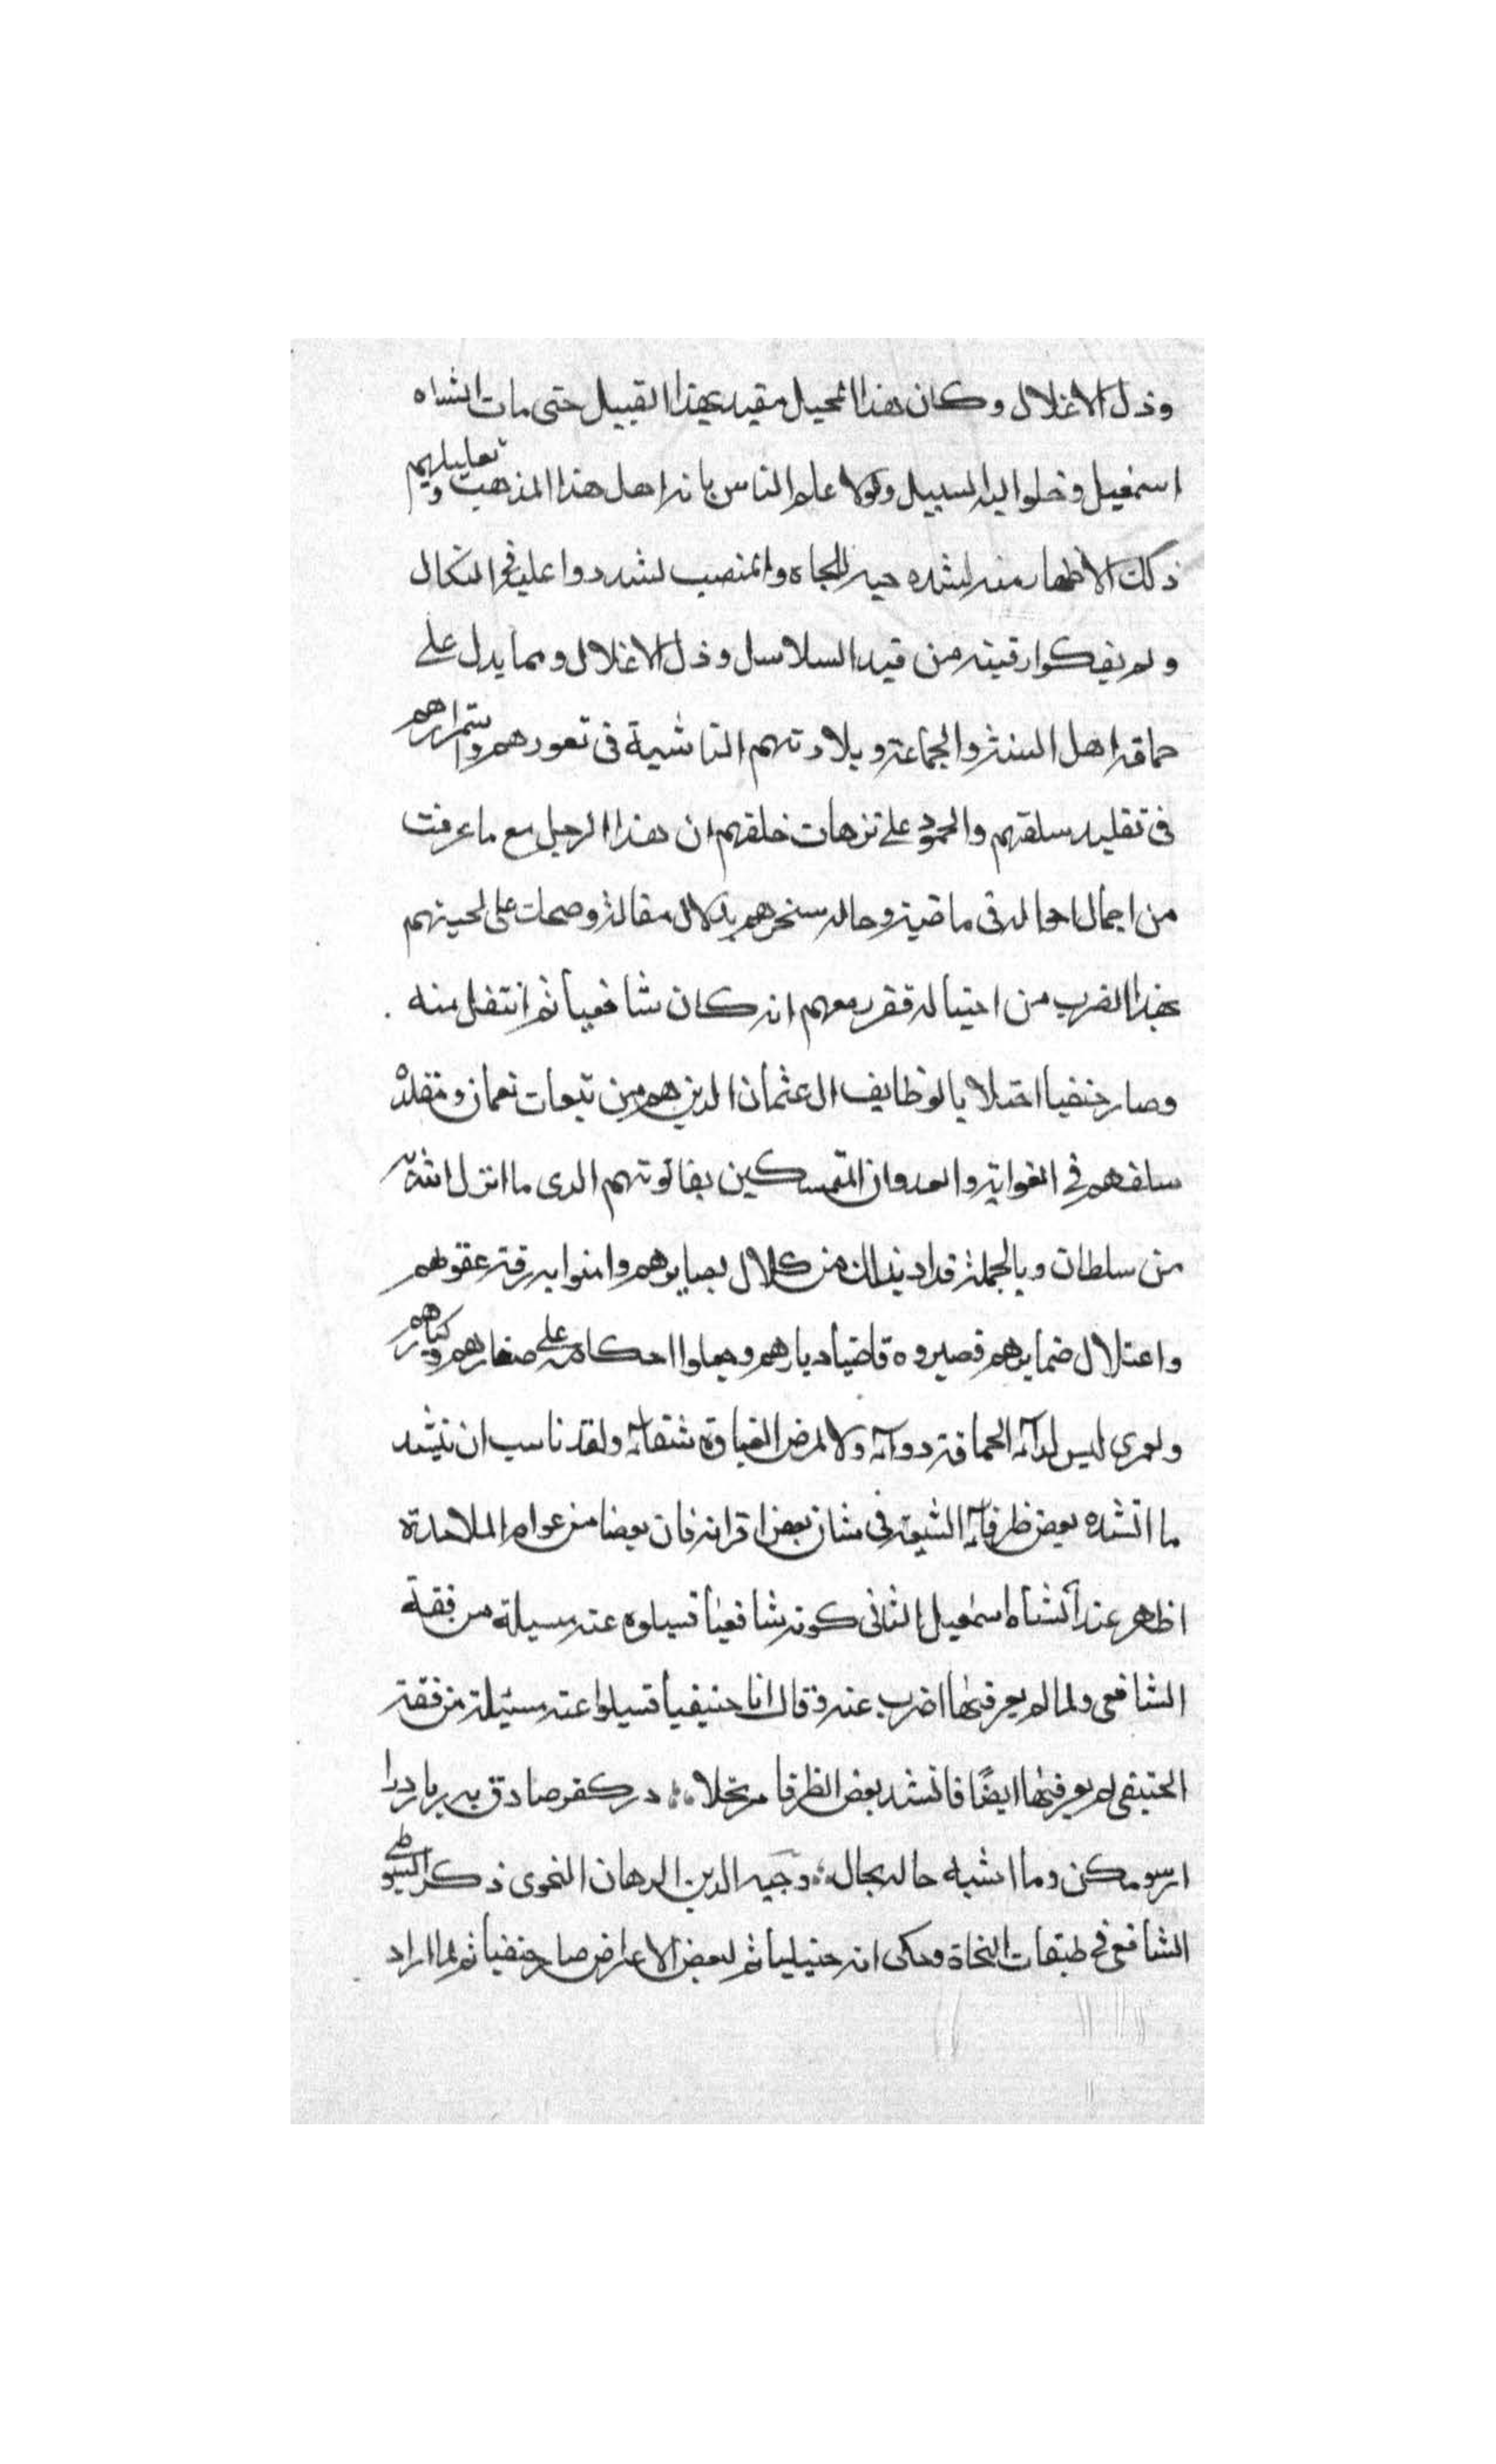 وذل الاغلال وكان هذا المحيل مقيد بهذا القبيل حتى مات الشاه
اسمعيل وخلوا اليه السبيل ولولا علم الناس بانه اهل هذا المذهب وتعليلهم
ذلك الاظهار منه لشده حبه للجاه والمنصب لشددوا عليه في النكال
ولم يفكوا رقبته من قيد السلاسل وذل الاغلال ومما يدل على
حماقه اهل السنة والجماعة وبلادتهم الناشية في تعودهم واستمرارهم
في تقليد سلفهم والجمود على ترهات خلفهم ان هذا الرجل مع ما عرفت
من اجمال احواله في ماضيه وحاله سخرهم مقاله وضحك على لحيتهم
بهذا الضرب من احتياله فقرر معهم انه كان شافعيا ثم انتقل منه
وصار حنفيا بالوظايف ال عثمان الذين هم من تبعات نعمان ومقلدة
سلفهم في الغواية والعدوان المتمسكين الذى ما انزل الله به
من سلطان وبالجملة من كلال بصايرهم وامنوا به رقة عقولهم
واعتلال ضمايرهم فصيروه قاضيا ديارهم احكامه على صغارهم وكبارهم
ولعمرى ليس لدآء الحماقة دوآء ولا لمرض الغباوة شفاء ولقد ناسب ان ننشد
ما انشده بعض ظرفاء الشيعة في شان بعض اقرانه فان بعضا من عوام الملاحدة
اظهر عند الشاه اسمعيل الثانى كونه شافعيا فسيلوه عنه مسيلة من فقه
الشافعى ولما لم يعرفها اضرب عنه وقال انا حنيفيا فسيلوا عنه مسئيلة من فقه
الحنيفى لم يعرفها ايضًا فانشد بعض الظرفا مرتجلا در كفر صادق
مكن وما اشبه حاله بحال وجيه الدين الدهان النحوى ذكر السيوطى
الشافعى في طبقات النحاة وحكى انه حنبليا ثم لبعض الاعراض صار حنفيا ثم لما اراد